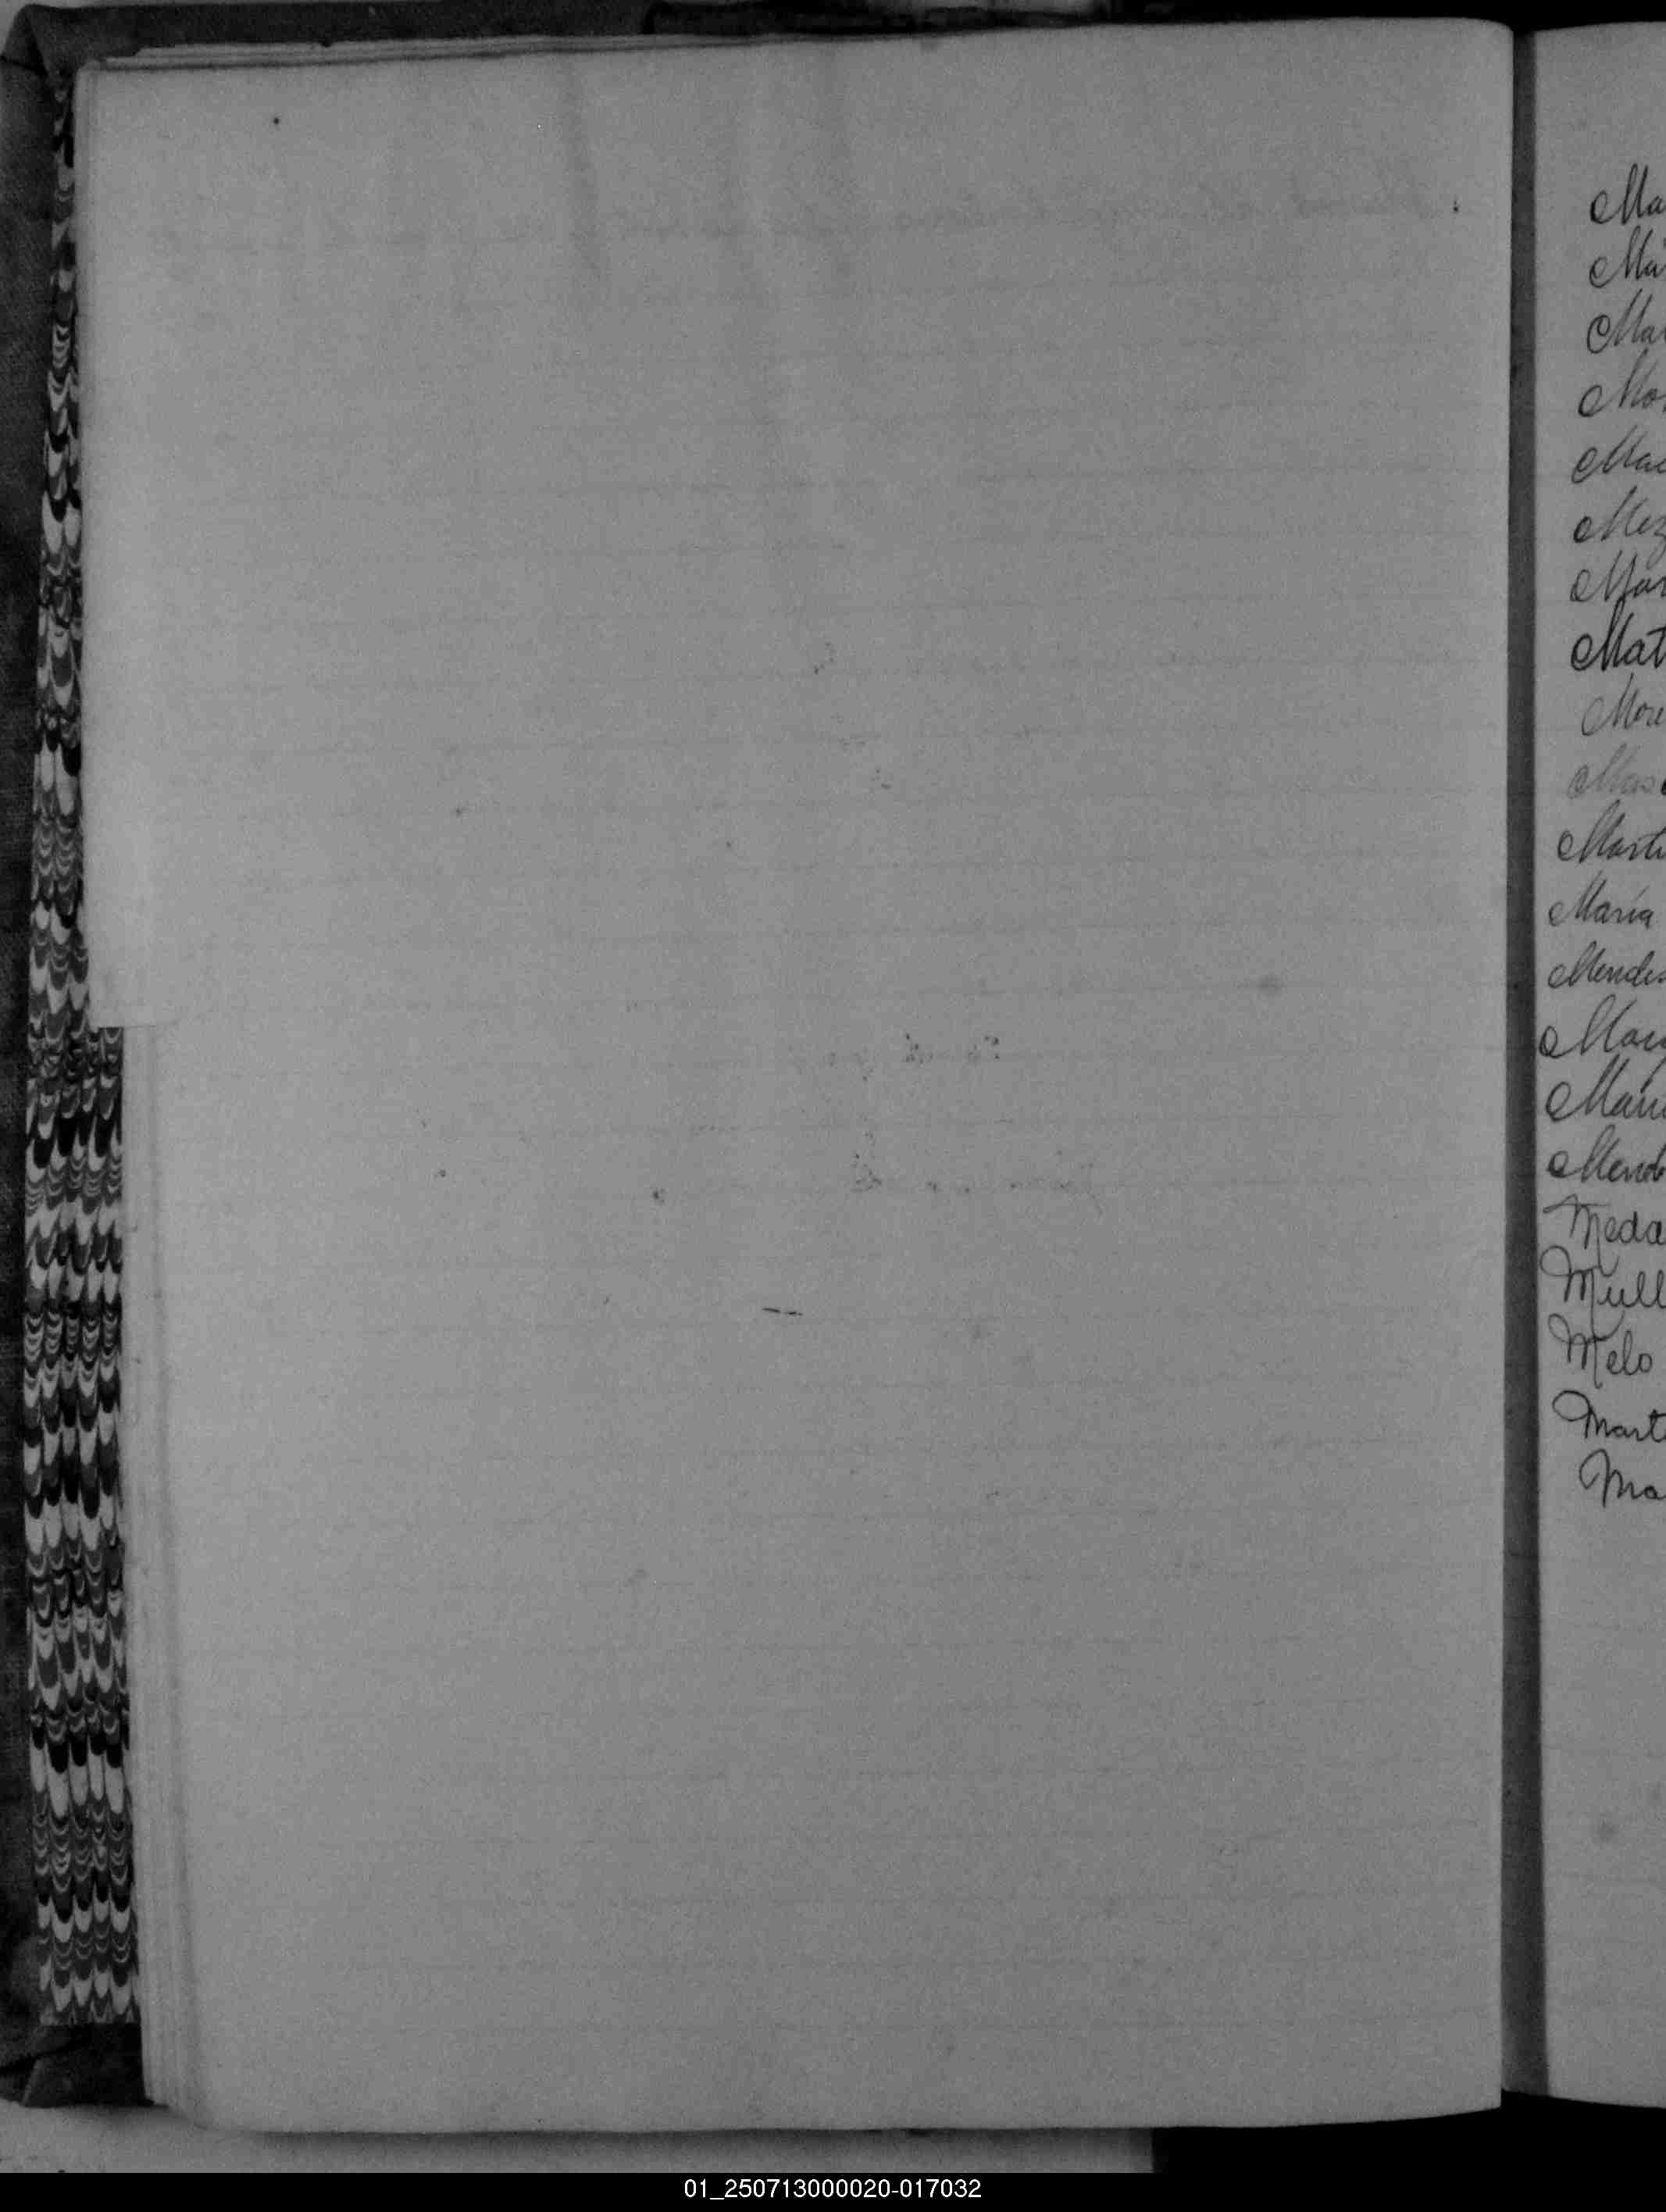 Ma
Má
Mar
Mo
Mac
Mez
Mar
Mat
More
Mas
Marti
María
Mendes
Mac
Marí
Mend
Meda
Mull
Melo
Mart
Ma
01_250713000020-017032